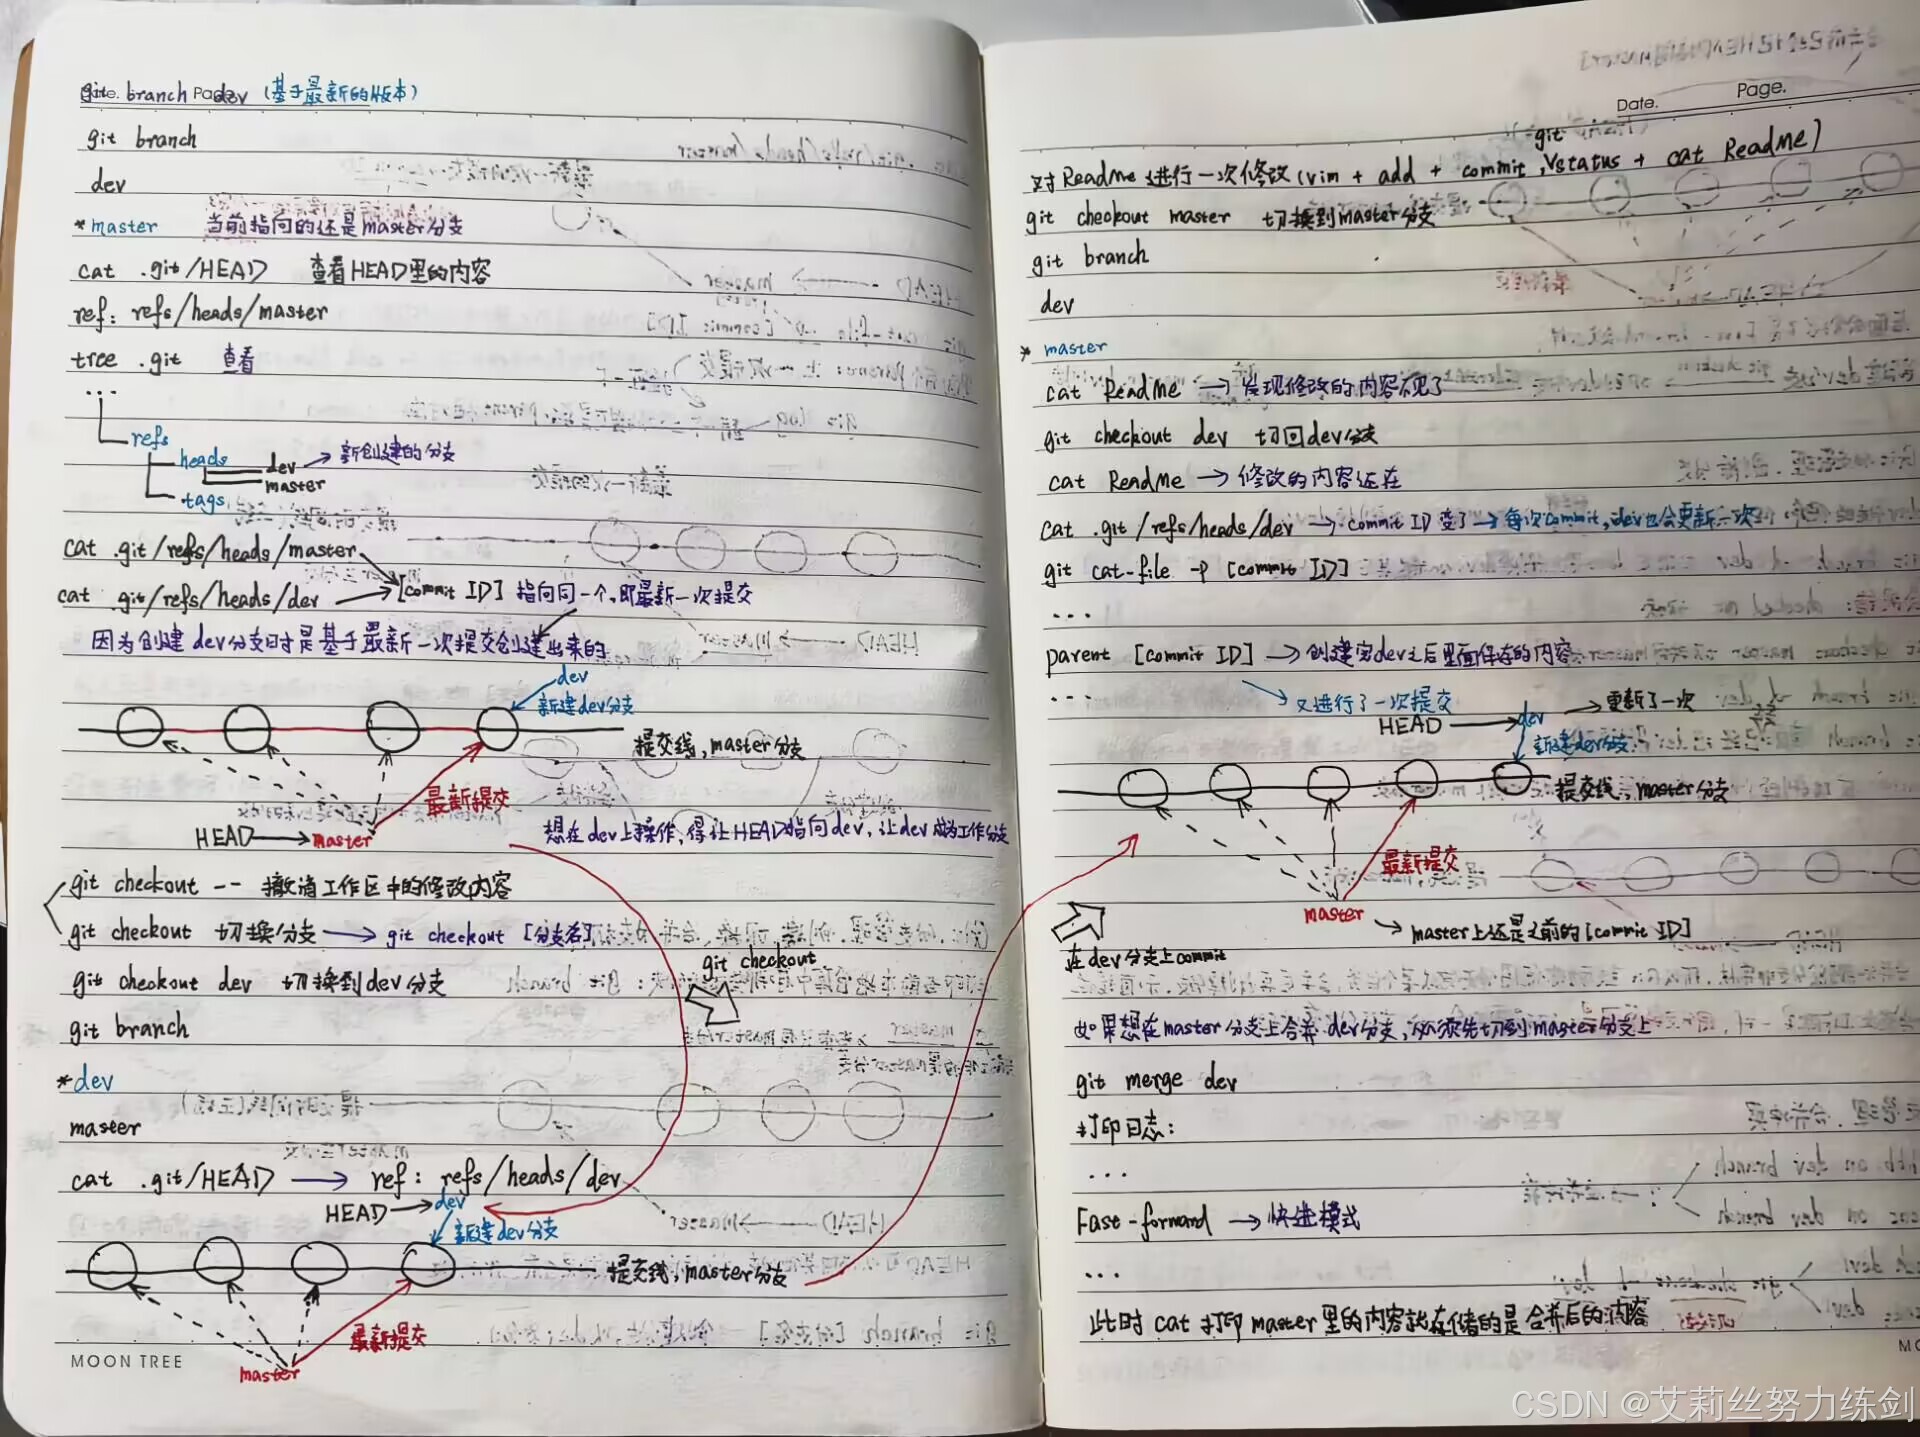 git branch dev (基于最新的版本)
git branch
dev
*master 当前指向的还是master分支
cat .git/HEAD 查看HEAD里的内容
ref: refs/heads/master
tree .git 查看
...
refs
heads
dev → 新创建的分支
master
tags
cat .git/refs/heads/master
cat .git/refs/heads/dev → [commit ID] 指向同一个,即最新一次提交
因为创建dev分支时是基于最新一次提交创建出来的
dev
新建dev分支
提交线,master分支
最新提交
HEAD → master
想在dev上操作,得让HEAD指向dev,让dev成为工作分支
git checkout -- 撤消工作区中的修改内容
git checkout 切换分支 → git checkout [分支名]
git checkout
git checkout dev 切换到dev分支
git branch
*dev
master
cat .git/HEAD → ref: refs/heads/dev
HEAD → dev
新建dev分支
提交线,master分支
最新提交
master
MOON TREE
Date. Page.
git
对ReadMe进行一次修改(vim + add + commit,status + cat ReadMe)
git checkout master 切换到master分支
git branch
dev
* master
cat ReadMe → 发现修改的内容不见了
git checkout dev 切回dev分支
cat ReadMe → 修改的内容还在
cat .git/refs/heads/dev → commit ID 变了 → 每次commit,dev也会更新一次
git cat-file -p [commit ID]
...
parent [commit ID] → 创建完dev之后里面保存的内容
...
又进行了一次提交
HEAD → dev → 更新了一次
新建dev分支
提交线,master分支
最新提交
master
master上还是之前的[commit ID]
在dev分支上commit
如果想在master分支上合并dev分支,必须先切到master分支上
git merge dev
打印日志:
...
Fast-forward → 快进模式
...
此时cat打印master里的内容就存储的是合并后的内容
CSDN @艾莉丝努力练剑